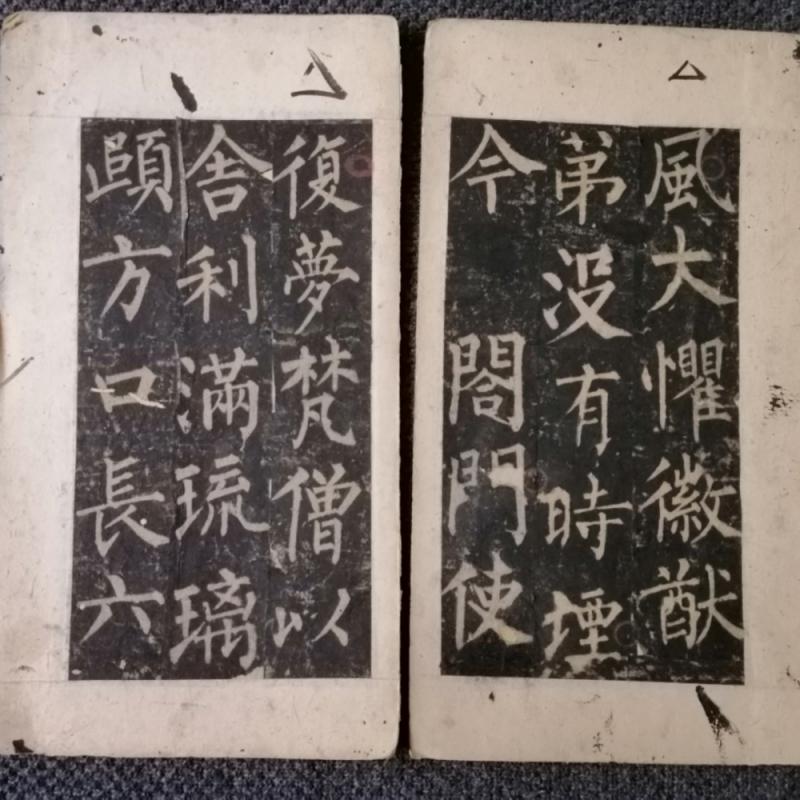 風大懼徽猷
苐沒有時堙
今 閤門使
復夢梵僧以
舍利滿琉璃
頤方口長六